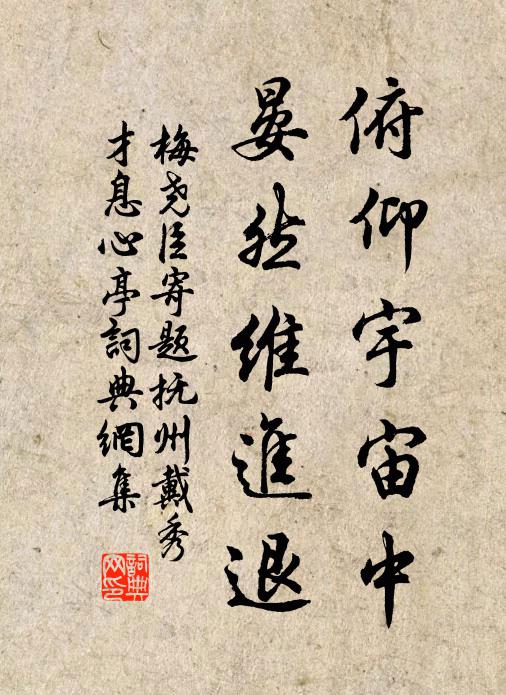 俯仰宇宙中
晏然維進退
梅尧臣寄題抚州戴秀
才息心亭詞典網集
詞典網印